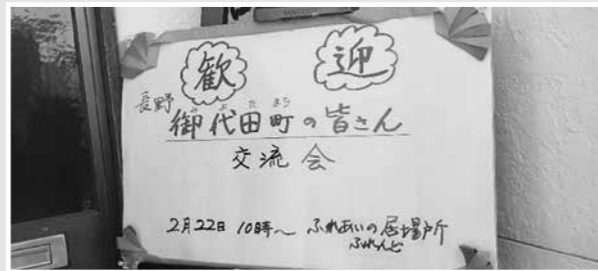 歓迎
長野
みよたまち
御代田町の皆さん
交流会
2月22日 10時～ ふれあいの居場所
ふれんど